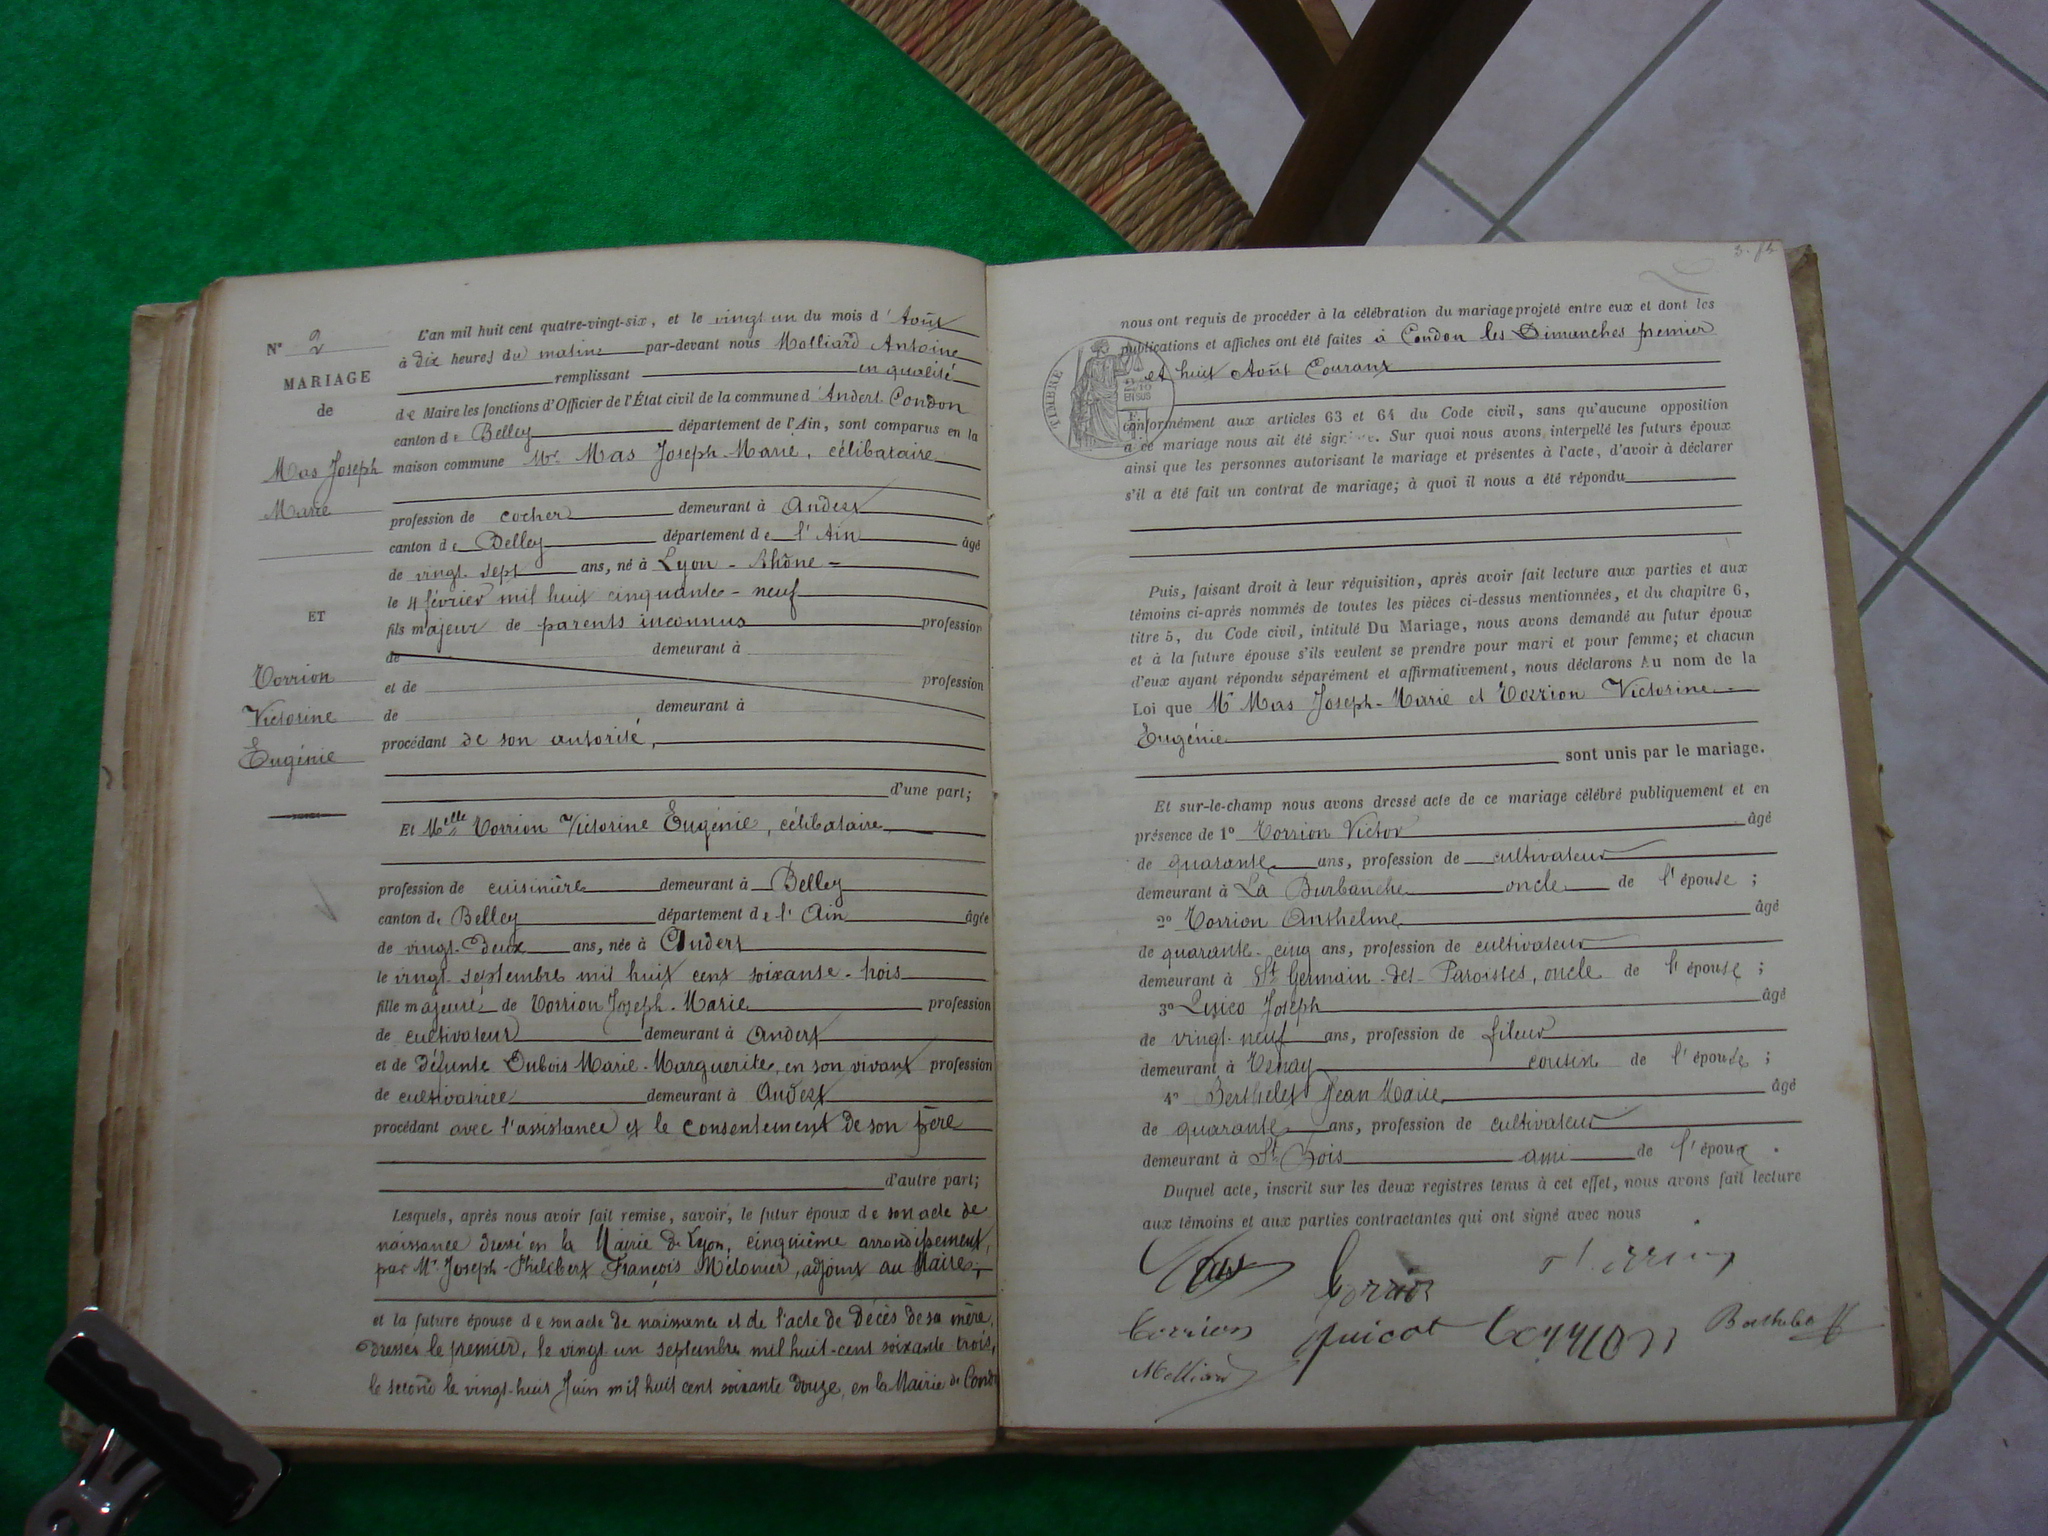 N° 2
MARIAGE
de
Mas Joseph
Marie
ET
Torrion
Victorine
Eugénie
L'an mil huit cent quatre-vingt-six, et le vingt un du mois d'Août
à dix heures du matin par-devant nous Molliard Antoine
remplissant en qualité
de Maire les fonctions d'Officier de l'État civil de la commune d'Andert Condon
canton de Belley département de l'Ain, sont comparus en la
maison commune Mr. Mas Joseph-Marie, célibataire
profession de cocher demeurant à Andert
canton de Belley département de l'Ain âgé
de vingt-sept ans, né à Lyon - Rhône -
le 4 février mil huit cinquante-neuf
fils majeur de parents inconnus profession
de demeurant à
et de profession
de demeurant à
procédant de son autorité,
d'une part;
Et Melle Torrion Victorine Eugénie, célibataire
profession de cuisinière demeurant à Belley
canton de Belley département de l'Ain âgée
de vingt-deux ans, née à Andert
le vingt septembre mil huit cent soixante-trois
fille majeure de Torrion Joseph-Marie profession
de cultivateur demeurant à Andert
et de défunte Dubois Marie-Marguerite, en son vivant profession
de cultivatrice demeurant à Andert
procédant avec l'assistance et le consentement de son père
d'autre part;
Lesquels, après nous avoir fait remise, savoir, le futur époux de son acte de
naissance dressé en la Mairie de Lyon, cinquième arrondissement,
par Mr. Joseph-Philibert François Mélonier, adjoint au Maire;
et la future épouse de son acte de naissance et de l'acte de décès de sa mère,
dressés le premier, le vingt un septembre mil huit-cent soixante trois,
le second le vingt-huit Juin mil huit cent soixante douze, en la Mairie de Condon
nous ont requis de procéder à la célébration du mariage projeté entre eux et dont les
publications et affiches ont été faites à Condon les Dimanches premier
et huit Août Courant
TIMBRE
2/10
EN SUS
Conformément aux articles 63 et 64 du Code civil, sans qu'aucune opposition
à ce mariage nous ait été signifiée. Sur quoi nous avons interpellé les futurs époux
ainsi que les personnes autorisant le mariage et présentes à l'acte, d'avoir à déclarer
s'il a été fait un contrat de mariage; à quoi il nous a été répondu
Puis, faisant droit à leur réquisition, après avoir fait lecture aux parties et aux
témoins ci-après nommés de toutes les pièces ci-dessus mentionnées, et du chapitre 6,
titre 5, du Code civil, intitulé Du Mariage, nous avons demandé au futur époux
et à la future épouse s'ils veulent se prendre pour mari et pour femme; et chacun
d'eux ayant répondu séparément et affirmativement, nous déclarons Au nom de la
Loi que Mr Mas Joseph-Marie et Torrion Victorine
Eugénie
sont unis par le mariage.
Et sur-le-champ nous avons dressé acte de ce mariage célébré publiquement et en
présence de 1° Torrion Victor âgé
de quarante ans, profession de cultivateur
demeurant à La Burbanche oncle de l'épouse ;
2° Torrion Anthelme âgé
de quarante-cinq ans, profession de cultivateur
demeurant à St Germain-des-Paroisses, oncle de l'épouse ;
3° Joseph âgé
de vingt-neuf ans, profession de fileur
demeurant à Tenay cousin de l'épouse ;
4° Berthelet Jean Marie âgé
de quarante ans, profession de cultivateur
demeurant à St Bois ami de l'époux .
Duquel acte, inscrit sur les deux registres tenus à cet effet, nous avons fait lecture
aux témoins et aux parties contractantes qui ont signé avec nous
Mas Torrion
Torrion Torrion
Molliard